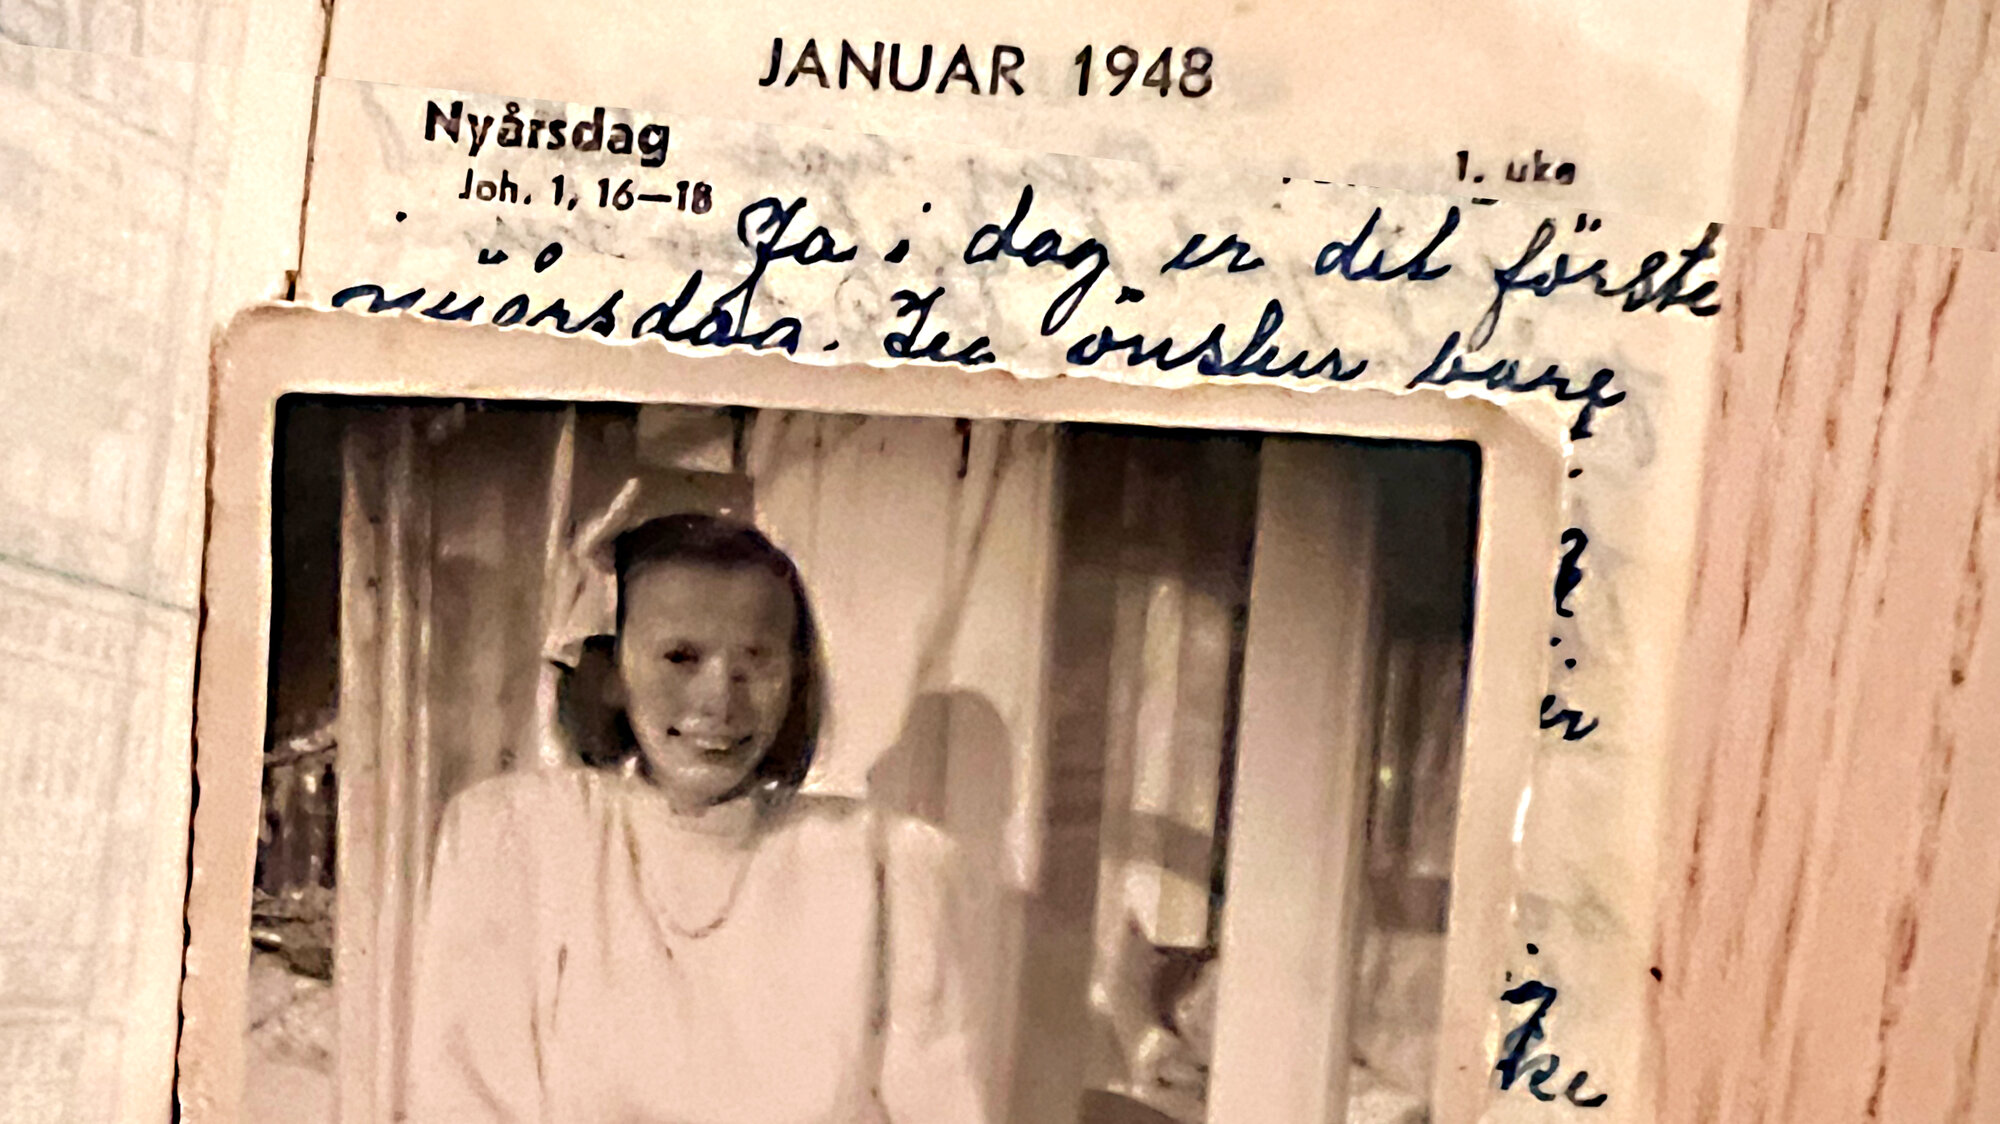 JANUAR 1948
Nyårsdag
1. uke
Joh. 1, 16—18
Ja i dag er det förste
nyårsdag. Jeg önsker bare
er
ke